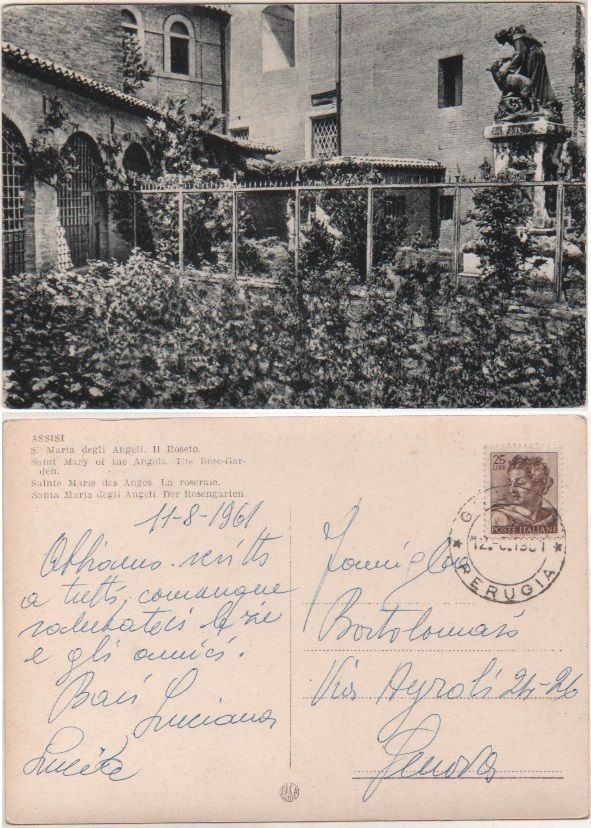 ASSISI
S. Maria degli Angeli. Il Roseto.
Saint Mary of the Angels. The Rose-Gar-
den.
Sainte Marie des Anges. La roseraie.
Santa Maria degli Angeli. Der Rosengarten.
11-8-1961
Abbiamo scritto
a tutti, comunque
salutateci le zie
e gli amici.
Baci Luciana
Lucia
25
LIRE
POSTE ITALIANE
PERUGIA
Famiglia
Bortolomasò
Via Ayroli 24-26
Genova